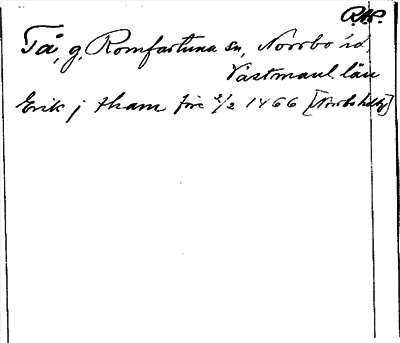 R.A.P.
Tå, g, Romfartuna sn, Norrbo hd,
Västmanl. län
Erik j tham före 2/2 1466 [Norbohdbr]